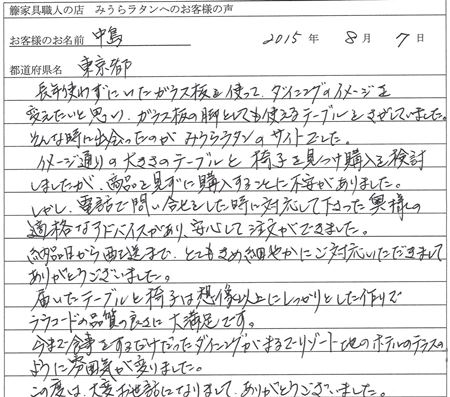 籐家具職人の店　みうらラタンへのお客様の声
お客様のお名前　中島　2015年　8月　7日
都道府県名　東京都
長年使わずにいたガラス板を使って、ダイニングのイメージを
変えたいと思い、ガラス板の脚としても使えるテーブルをさがしていました。
そんな時に出会ったのが みうらラタンのサイトでした。
イメージ通りの大きさのテーブルと 椅子を見つけ購入を検討
しましたが、商品を見ずに購入することに不安がありました。
しかし、電話で問い合せとした時に対応して下さった奥様の
適格なアドバイスがあり、安心して注文ができました。
納品日から配送まで、とてもきめ細やかにご対応いただきまして
ありがとうございました。
届いたテーブルと椅子は想像以上にしっかりとした作りで
ラタンコードの品質の良さに 大満足です。
今まで食事をするだけだったダイニングがまるでリゾート地のホテルのテラスの
ように雰囲気が変りました。
この度は、大変お世話になりまして、ありがとうございました。